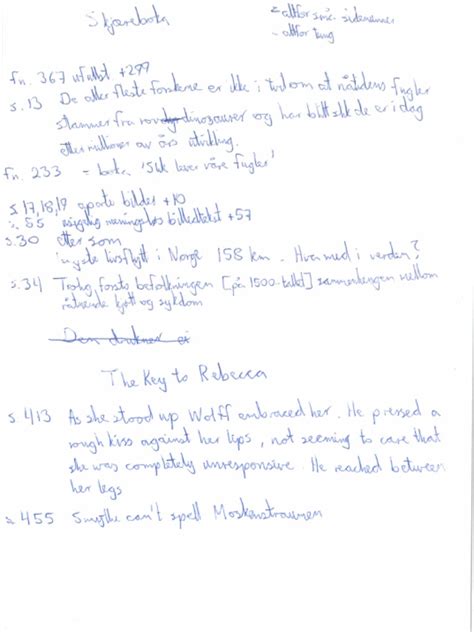 Skjæreboka
- altfor små sidenumre
- altfor tung
fn. 367 ufullst. +299
s. 13 De aller fleste forskere er ikke i tvil om at nåtidens fugler
stammer fra dinosaurer og har blitt slik de er i dag
etter millioner av års utvikling.
fn. 233 - boka 'Slik lever våre fugler'
s. 17, 18, 19 bilder +10
s. 55 meningsløs billedtekst +57
s. 30 etter som
lengste i Norge 158 km. Hva med i verden?
s. 34 befolkningen [på 1500-tallet] sammenhengen mellom
råtnende kjøtt og sykdom
Den drukner ei
The Key to Rebecca
s. 413 As she stood up Wolff embraced her. He pressed a
rough kiss against her lips, not seeming to care that
she was completely unresponsive. He reached between
her legs
s. 455 Smythe can't spell Moskenstraumen